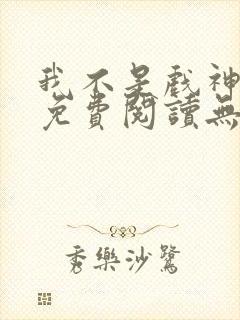 我不是戲神
免費閱讀無
秀樂沙鷺